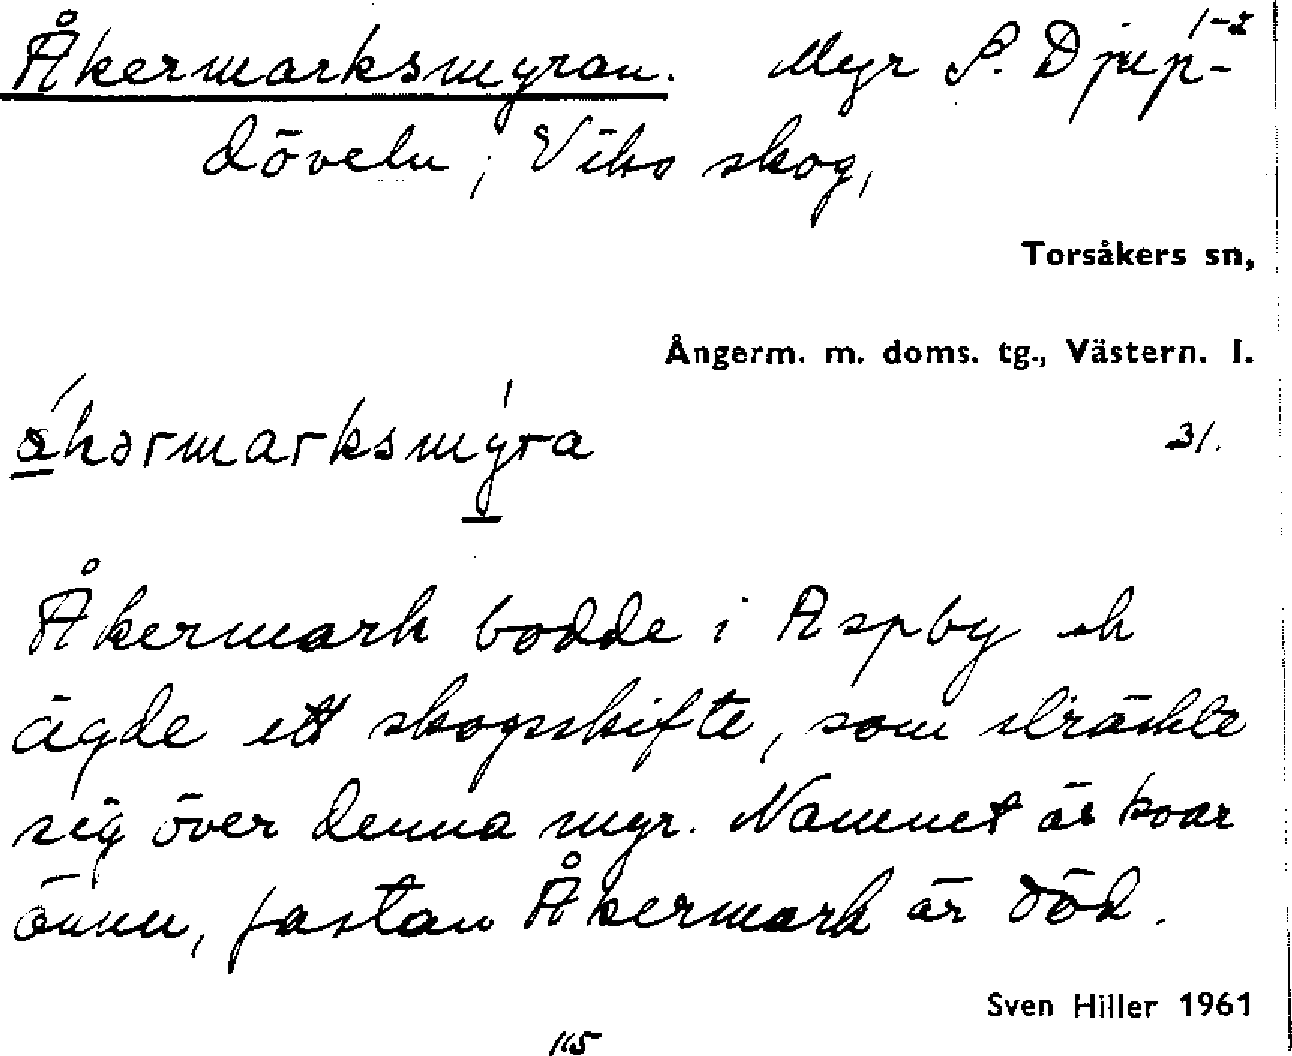 Åkermarksmyran. Myr S. Djup- 1-2
döveln, Viks skog,
Torsåkers sn,
Ångerm. m. doms. tg., Västern. l.
åkərmarksmýra 31.
Åkermark bodde i Aspby ok
ägde ett skogsskifte, som sträckte
sig över denna myr. Namnet är kvar
ännu, fastän Åkermark är död.
Sven Hiller 1961
115